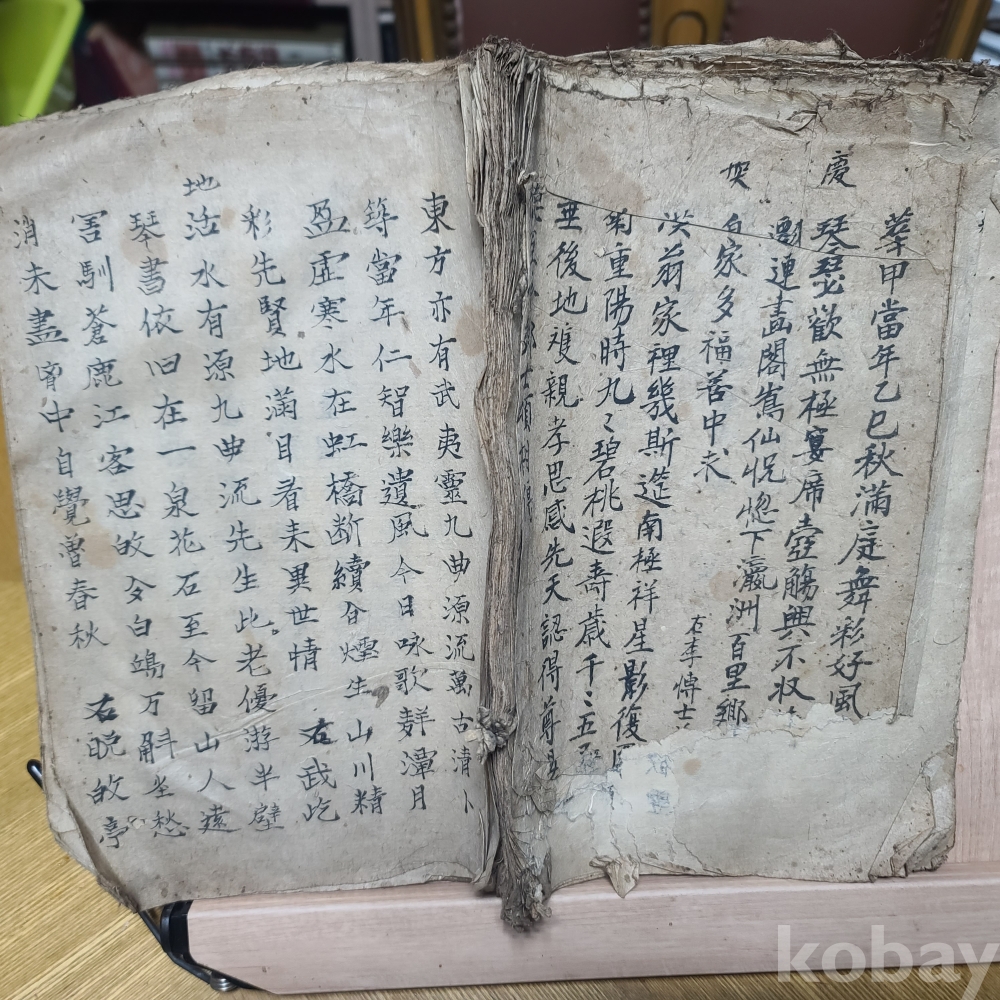 慶
華甲當年乙巳秋滿庭舞彩好風
琴瑟歡無極宴席壺觴興不収
邀連畵閣鶯仙怳惚下瀛洲百里鄉
自家多福善中来
右李博士
洪翁家裡幾斯筵南極祥星影復
菊重陽時九〻碧桃遐壽歲千〻五
亜後地複親孝思感先天認得尊
東方亦有武夷靈九曲源流萬古清卜
等當年仁智樂遺風今日咏歌群潭月
盈虛寒水在虹橋断續分煙生山川精
彩先賢地滿目看来異世情 右武屹
地
活水有源九曲流先生此老優游半壁
琴書依旧在一泉花石至今留山人
害馴蒼鹿江客思故令白鴎万斛坐愁
消未盡宵中自覺曾春秋 右晩故亭
kobay